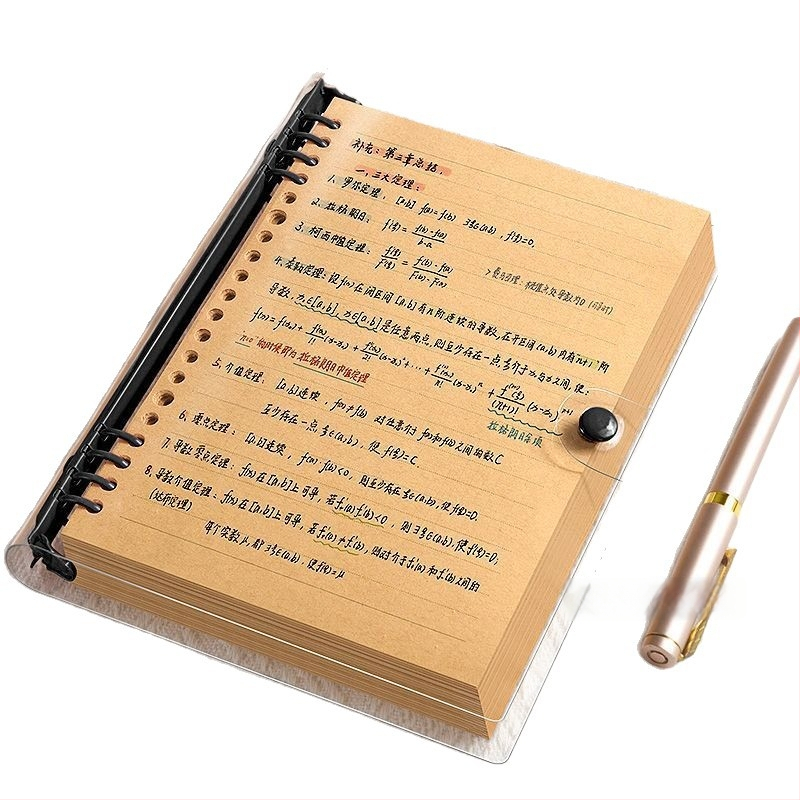 补充：第三章总结.
一、三大定理：
1、罗尔定理： [a,b] f(a)=f(b) ∃ξ∈(a,b)，f'(ξ)=0.
2、拉格朗日： f'(ξ)=\frac{f(b)-f(a)}{b-a}
3、柯西中值定理： \frac{f'(ξ)}{F'(ξ)}=\frac{f(b)-f(a)}{F(b)-F(a)}
>费马引理：极值点处导数为0（可导时）
4、泰勒定理：设f(x)在闭区间[a,b]有n阶连续的导数,在开区间(a,b)内有n+1阶
导数, x₀∈[a,b], x∈[a,b]是任意两点, 则至少存在一点ξ介于x₀与x之间,使：
f(x)=f(x₀)+\frac{f'(x₀)}{1!}(x-x₀)+\frac{f''(x₀)}{2!}(x-x₀)²+…+\frac{f^{(n)}(x₀)}{n!}(x-x₀)ⁿ+\frac{f^{(n+1)}(ξ)}{(n+1)!}(x-x₀)^{n+1}
"n=0"的时候即为拉格朗日中值定理
拉格朗日余项
5、介值定理： [a,b]连续，f(a)≠f(b) 对任意介于f(a)和f(b)之间的数C
至少存在一点ξ∈(a,b)，使f(ξ)=C.
6、零点定理： [a,b]连续，f(a)·f(b)<0，则至少存在ξ∈(a,b),使f(ξ)=0.
7、导数零点定理：f(x)在[a,b]上可导，若f'₊(a)f'₋(b)<0，则∃ξ∈(a,b),使f'(ξ)=0;
8、导数介值定理：f(x)在[a,b]上可导，若f'₊(a)≠f'₋(b)，则对介于f'₊(a)和f'₋(b)之间的
(达布定理)
每个实数μ,都∃ξ∈(a,b)，使f'(ξ)=μ